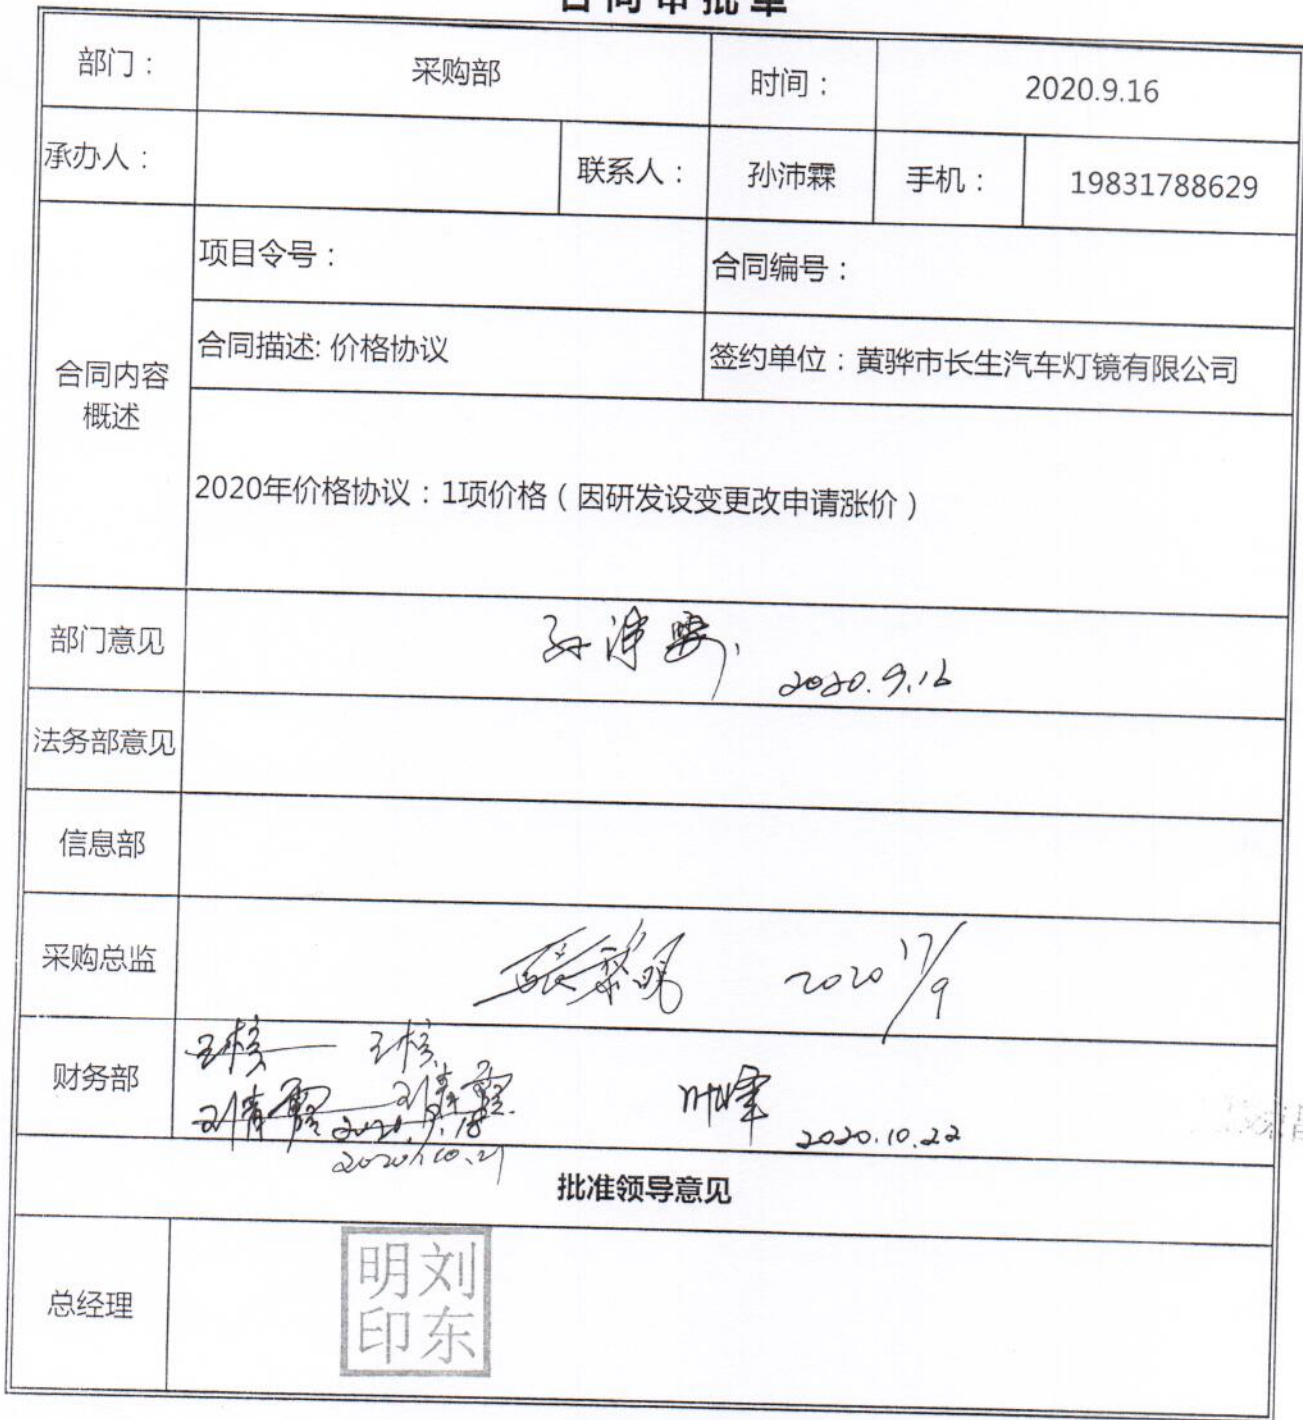 合同审批单
部门： 采购部 时间： 2020.9.16
承办人： 联系人： 孙沛霖 手机： 19831788629
合同内容概述
项目令号： 合同编号：
合同描述: 价格协议 签约单位：黄骅市长生汽车灯镜有限公司
2020年价格协议：1项价格（因研发设变更改申请涨价）
部门意见 孙沛霖 2020.9.16
法务部意见
信息部
采购总监 2020 17/9
财务部
2020.9.18
2020.10.21
叶峰 2020.10.22
批准领导意见
总经理
刘东明印